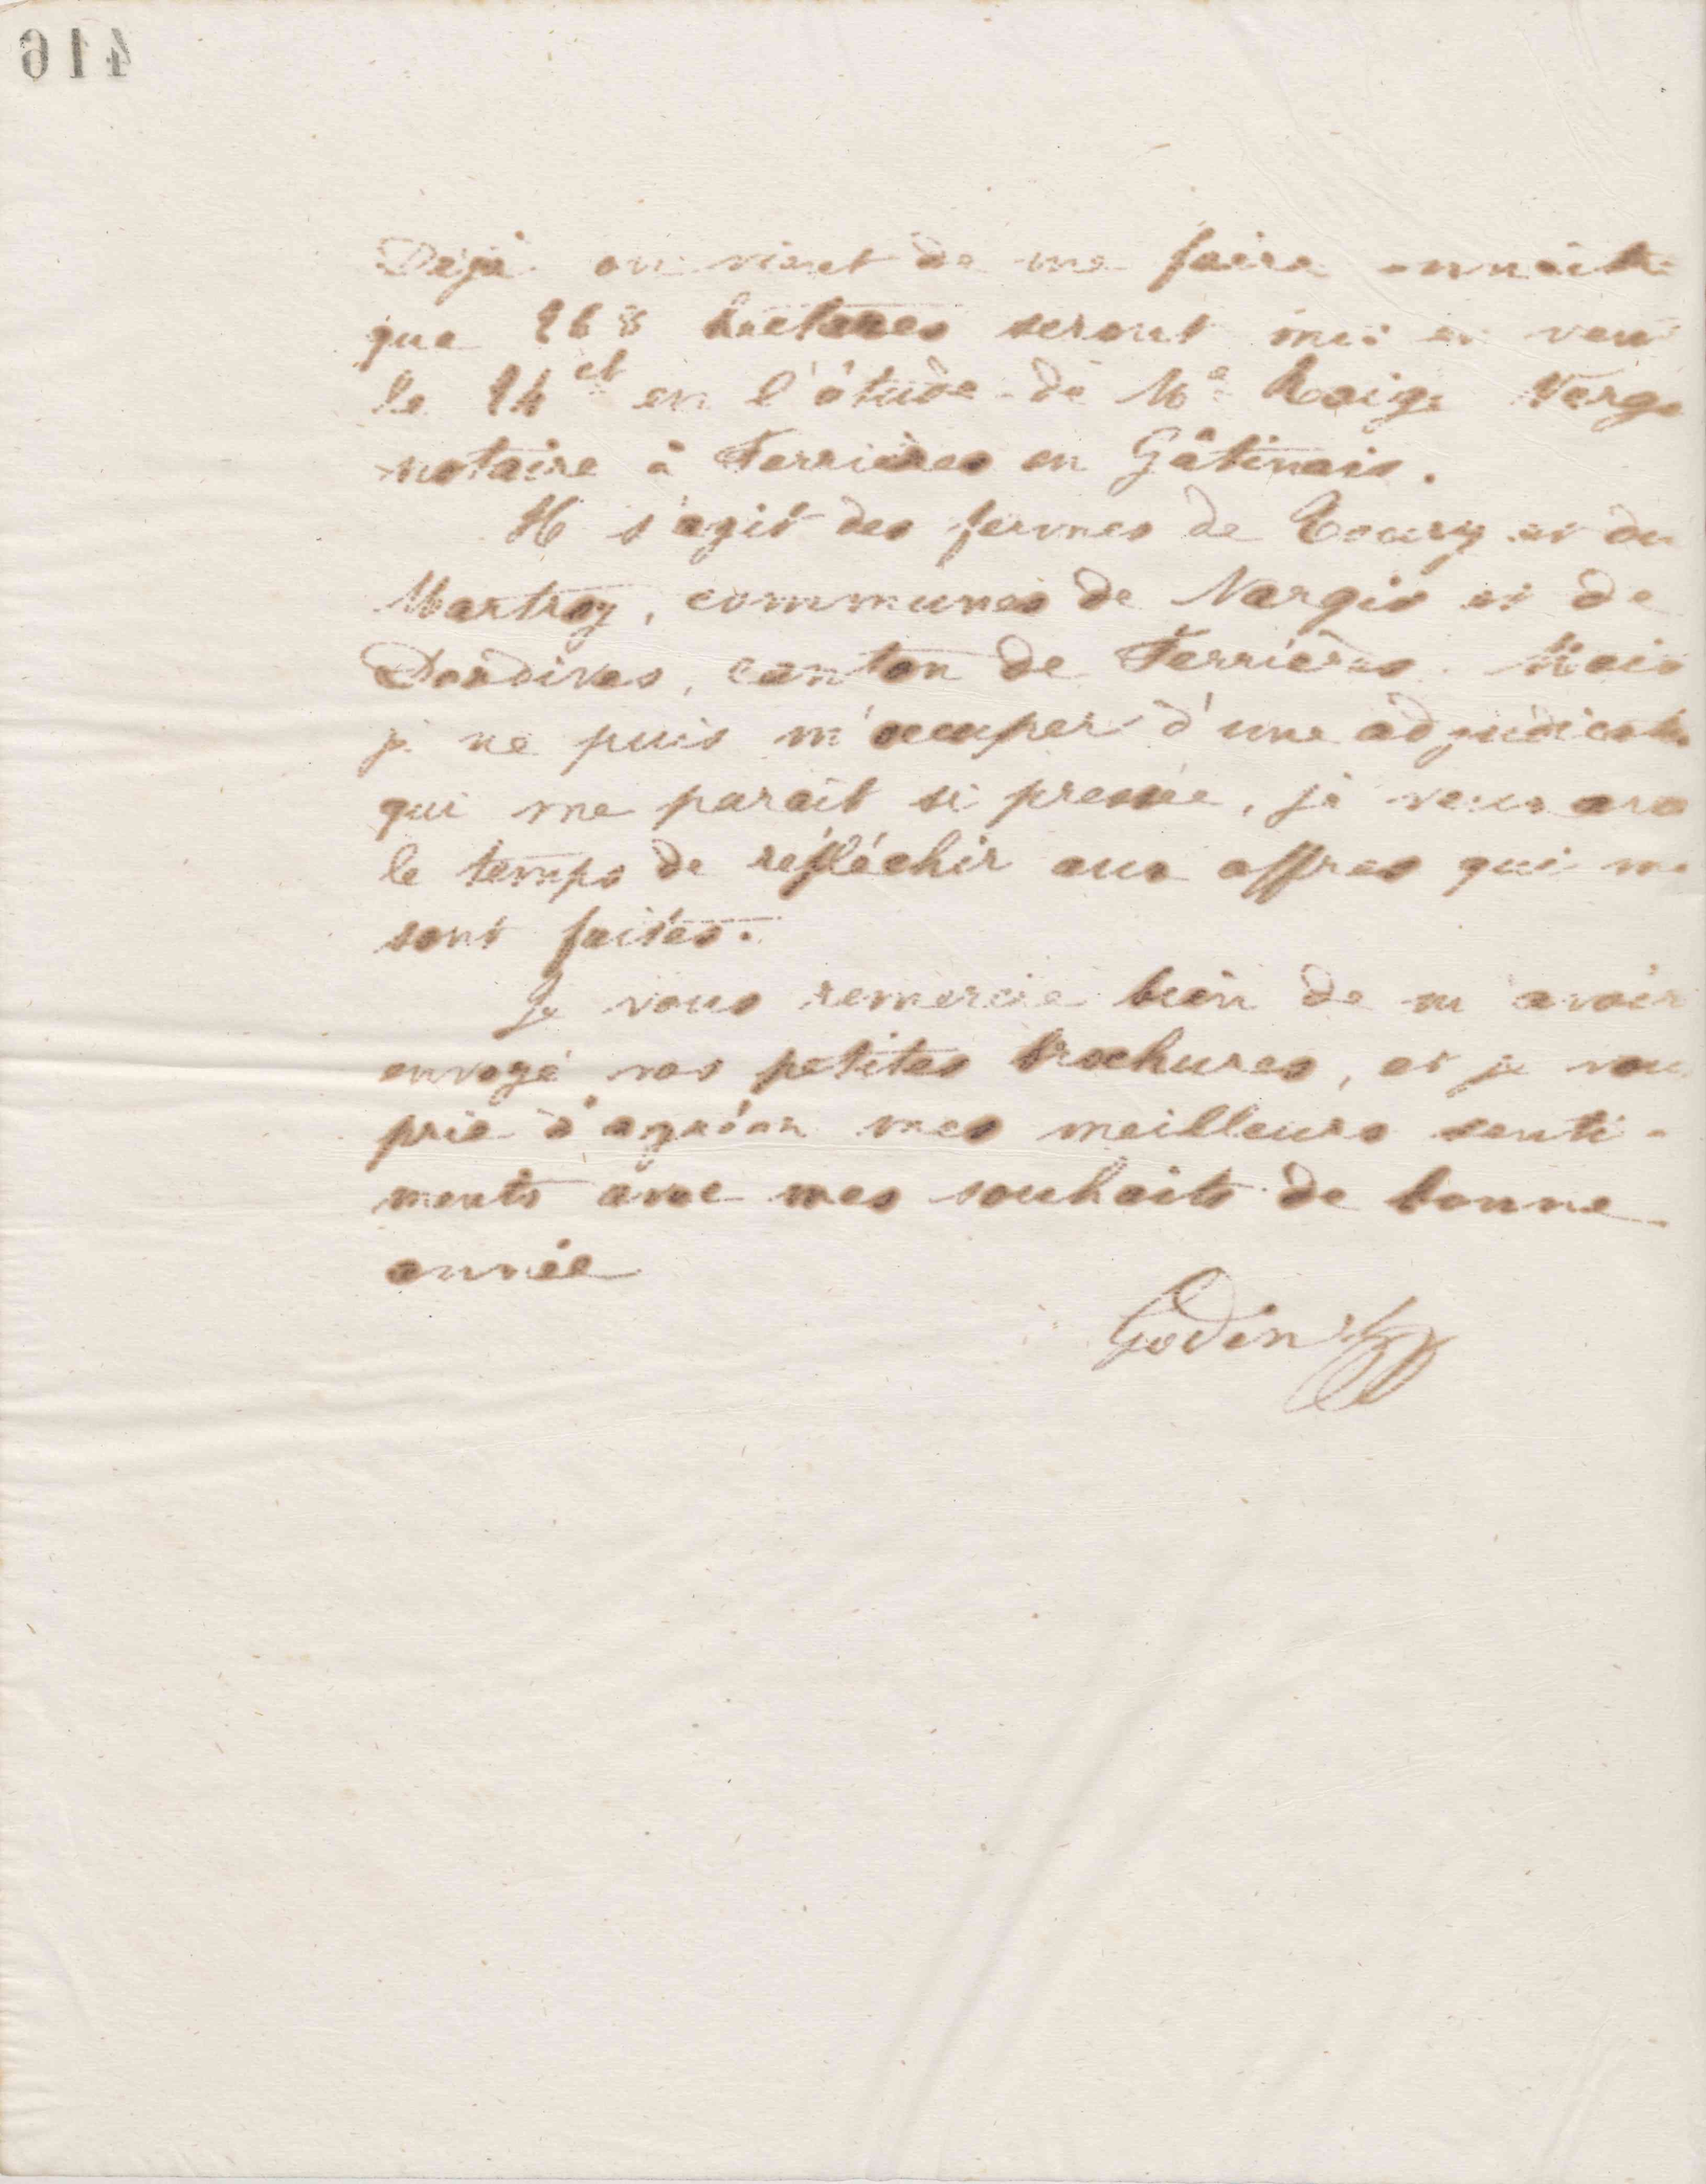 416
Déjà on vient de me faire connaître
que 268 hectares seront mis en ven
le 24 ct en l'étude de Me
notaire à Ferrières en Gâtinais.
Il s'agit des fermes de Toury et du
Martroy, communes de Nargis et de
Dordives, canton de Ferrières. Mais
je ne puis m'occuper d'une adjudicati
qui me parait si pressée, je veux avo
le temps de réfléchir aux offres qui me
sont faites.
Je vous remercie bien de m'avoir
envoyé vos petites brochures, et je vou
prie d'agréer mes meilleurs senti-
ments avec mes souhaits de bonne
année
Godin